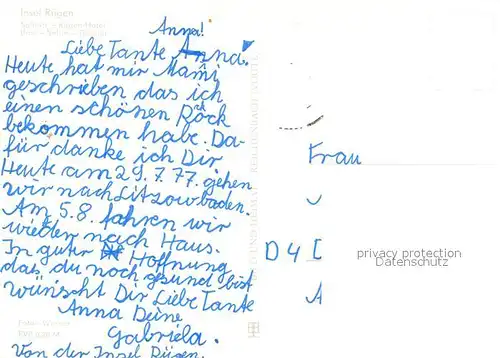 Insel Rügen
Anna!
Liebe Tante Anna.
Heute hat mir Mami
geschrieben das ich
einen schönen Rock
bekommen habe. Da-
für danke ich Dir
Heute am 29.7.77. gehen
wir nach Litzow baden.
Am 5.8. fahren wir
wieder nach Haus.
In guter Hoffnung
das du noch gesund bist
wünscht Dir Liebe Tante
Anna Deine
Gabriela.
Von der Insel Rügen.
Frau
D 4
privacy protection
Datenschutz